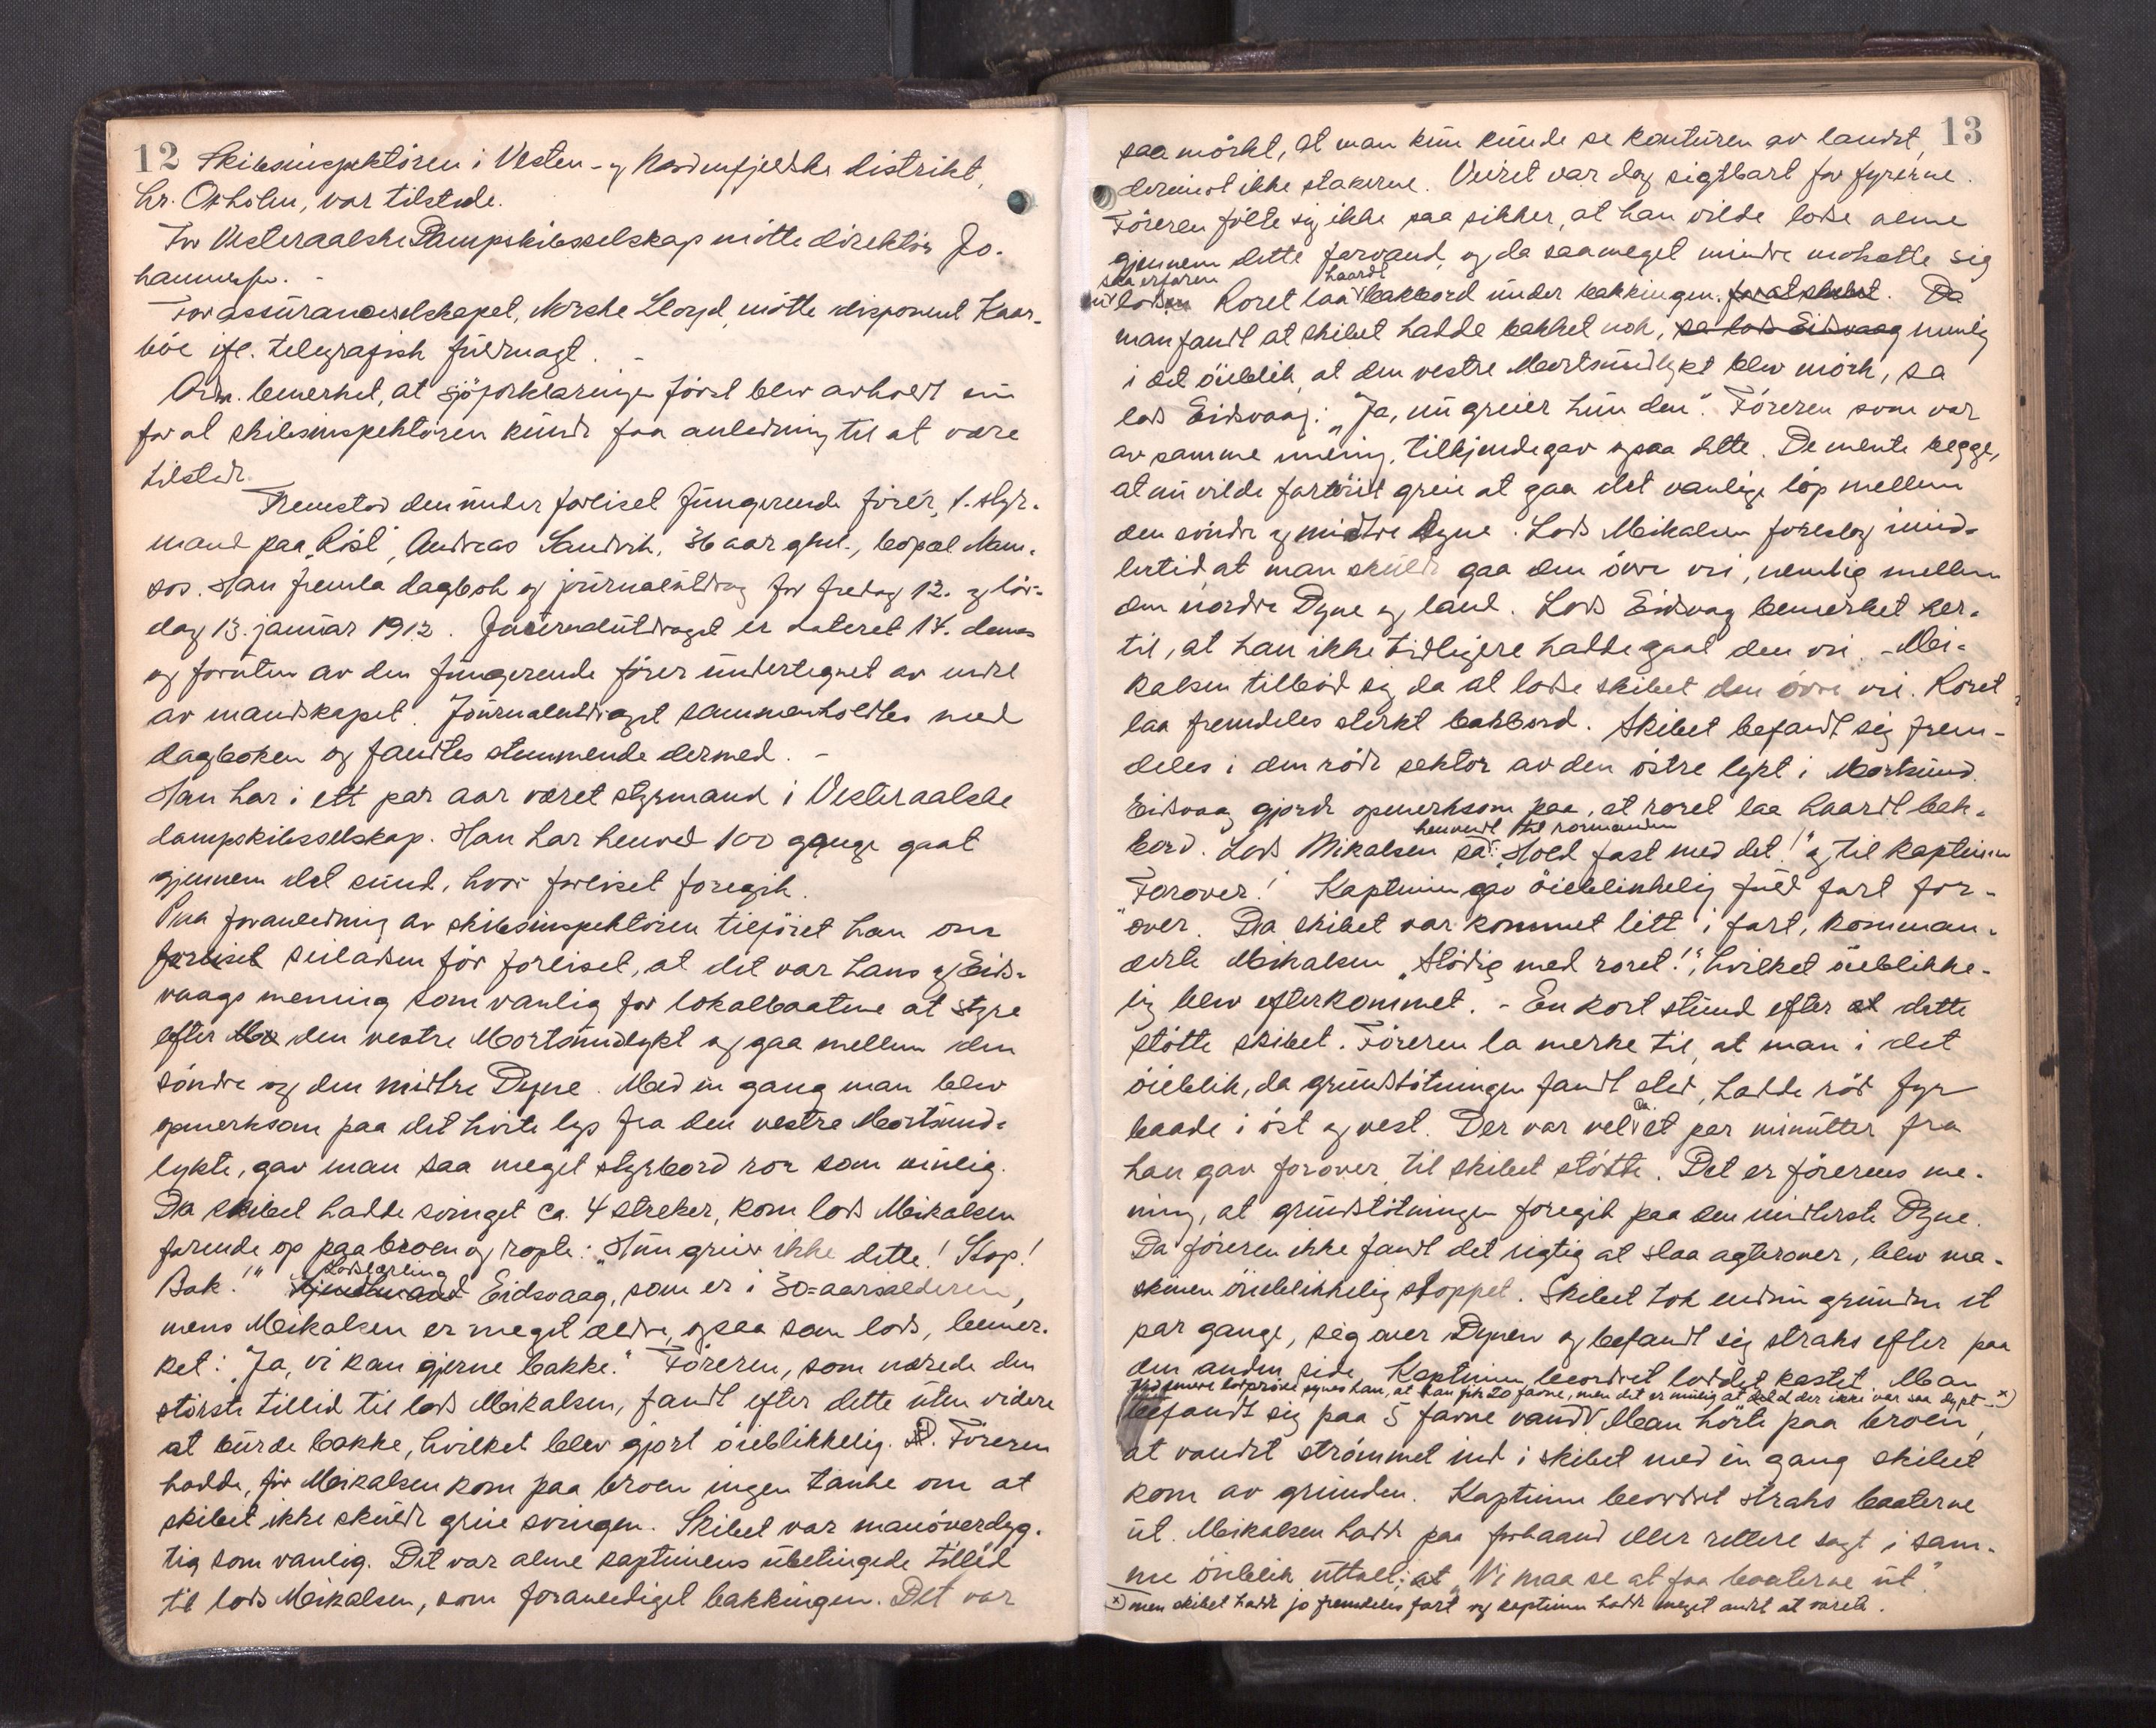 12 Skibsinspektören i Vesten- og Nordenfjeldske distrikt,
hr. Oxholm, var tilstede.
For Vesteraalske Dampskibsselskap mötte direktör Jo-
hannessen. -
For assuranceselskapet, Norske Lloyd, mötte disponent Kaar-
böe ifl. telegrafisk fuldmagt. -
Adm. bemerket, at sjöforklaringen först blev avholdt nu
for at skibsinspektören kunde faa anledning til at være
tilstede.
Fremstod den under forliset fungerende förer, 1. styr-
mand paa "Röst", Andreas Sandvik, 36 aar gml., bopæl Nam-
sos. Han fremla dagbok og journalutdrag for fredag 12. og lör-
dag 13. januar 1912. Journalutdraget er dateret 14. dennes
og foruten av den fungerende förer undertegnet av endel
av mandskapet. Journalutdraget sammenholdtes med
dagboken og fandtes stemmende dermed. -
Han har i ett par aar været styrmand i Vesteraalske
dampskibsselskap. Han har henved 100 gange gaat
gjennem det sund, hvor forliset foregik.
Paa foranledning av skibsinspektören tilföiet han om
forliset seiladsen för forliset, at det var hans og Eids-
vaags mening som vanlig for lokalbaatene at styre
efter den vestre Mortsundlykt og gaa mellem den
söndre og den midtre Dyne. Med en gang man blev
opmerksom paa det hvite lys fra den vestre Mortsund-
lykte, gav man saa meget styrbord ror som mulig.
Da skibet hadde svinget ca. 4 streker, kom lods Meikalsen
farende op paa broen og ropte: "Hun greier ikke dette! Stop!
Lodslærling
Bak!" Kjendtmand Eidsvaag, som er i 30-aarsalderen,
mens Meikalsen er meget ældre, ogsaa som lods, bemer-
ket: "Ja, vi kan gjerne bakke." Föreren, som nærede den
störste tillid til lods Meikalsen, fandt efter dette uten videre
at burde bakke, hvilket blev gjort öieblikkelig. Föreren
hadde, för Meikalsen kom paa broen ingen tanke om at
skibet ikke skulde greie svingen. Skibet var manöverdyg-
tig som vanlig. Det var alene kapteinens ubetingede tillid
til lods Meikalsen, som foranlediget bakkingen. Det var
13
saa mörkt, at man kun kunde se konturen av landet,
derimot ikke stakerne. Veiret var dog sigtbart for fyrerne.
Föreren fölte sig ikke saa sikker, at han vilde lodse alene
gjennem dette farvand, og da saa meget mindre motsatte sig
saa erfaren haardt
en lods. Roret laa bakbord under bakkingen. for at skibet. Da
man fandt at skibet hadde bakket nok, sa lods Eidsvaag nemlig
i det öieblik, at den vestre Mortsundlykt blev mörk, sa
lods Eidsvaag: "Ja, nu greier hun den". Föreren som var
av samme mening, tilkjendegav ogsaa dette. De mente begge,
at nu vilde fartöiet greie at gaa det vanlige löp mellem
den söndre og midtre Dyne. Lods Meikalsen foreslog imid-
lertid, at man skulde gaa den övre vei, nemlig mellem
den nordre Dyne og land. Lods Eidsvaag bemerket her-
til, at han ikke tidligere hadde gaat den vei. - Mei-
kalsen tilbod sig da at lodse skibet den övre vei. Roret
laa fremdeles sterkt bakbord. Skibet befandt sig frem-
deles i den röde sektor av den östre lykt i Mortsund.
Eidsvaag gjorde opmerksom paa, at roret laa haardt bak-
henvendt til rormanden
bord. Lods Mikalsen sa: "Hold fast med det!" og til kapteinen
"Forover!" Kapteinen gav öieblikkelig fuld fart for-
over. Da skibet var kommet litt i fart, komman-
derte Meikalsen "Stödig med roret!", hvilket öieblikke-
lig blev efterkommet. - En kort stund efter at dette
stötte skibet. Föreren la merke til, at man i det
öieblik, da grundstötningen fandt sted, hadde röd fyr
baade i öst og vest. Der var vel ca et par minutter fra
han gav forover, til skibet stötte. Det er förerens me-
ning, at grundstötningen foregik paa den midterste Dyne.
Da föreren ikke fandt det rigtig at slaa agterover, blev ma-
skinen öieblikkelig stoppet. Skibet tok endnu grunden et
par gange, seg over Dynen og befandt sig straks efter paa
den anden side. Kapteinen beordret loddet kastet. Man
Ved senere lodpröve synes han, at han fik 20 favne, men det er mulig at det der ikke var saa dypt x)
befandt sig paa 5 favne vand. Man hörte paa broen,
at vandet strömmet ind i skibet med en gang skibet
kom av grunden. Kapteinen beordret straks baaterne
ut. Meikalsen hadde paa forhaand eller rettere sagt i sam-
me öieblik uttalt: at "Vi maa se at faa baaterne ut".
x) men skibet hadde jo fremdeles fart og kapteinen hadde meget andet at vareta.